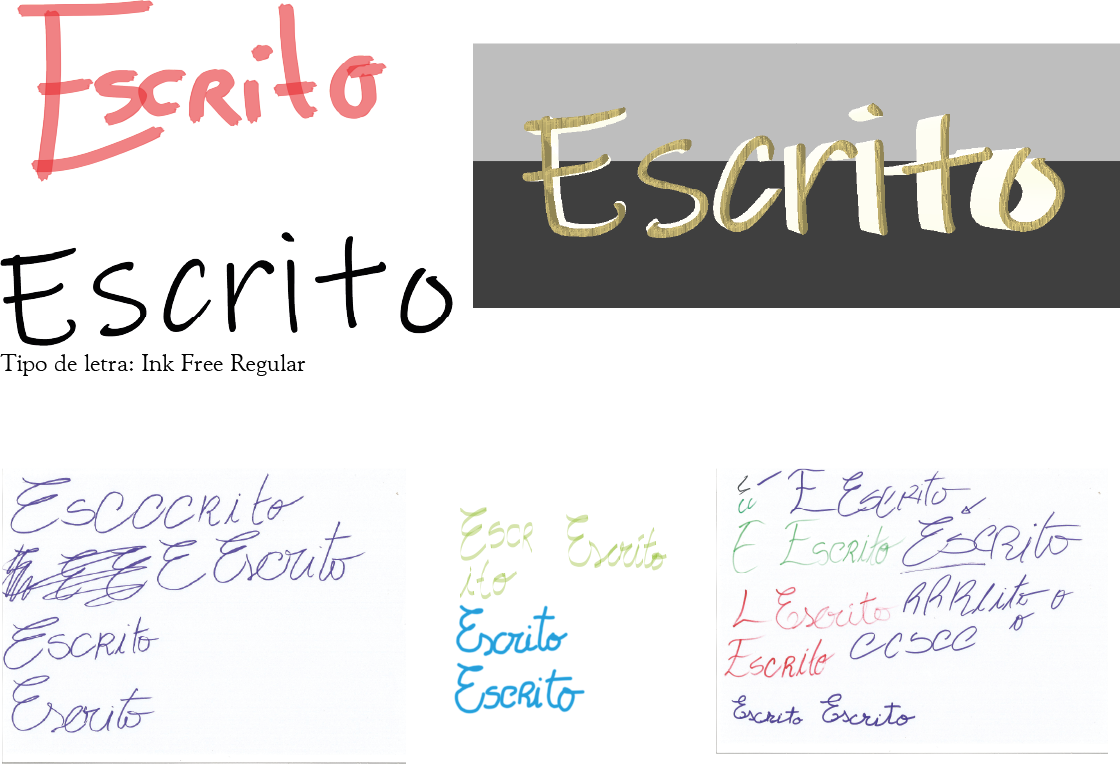 Escrito
Escrito
Escrito
Tipo de letra: Ink Free Regular
EsCCCRito
E Escrito
Escrito
Escrito
Escr
ito
Escrito
Escrito
Escrito
E Escrito
E Escrito
Escrito
L Escrito
RRR
Escrito
CCSCC
Escrito Escrito